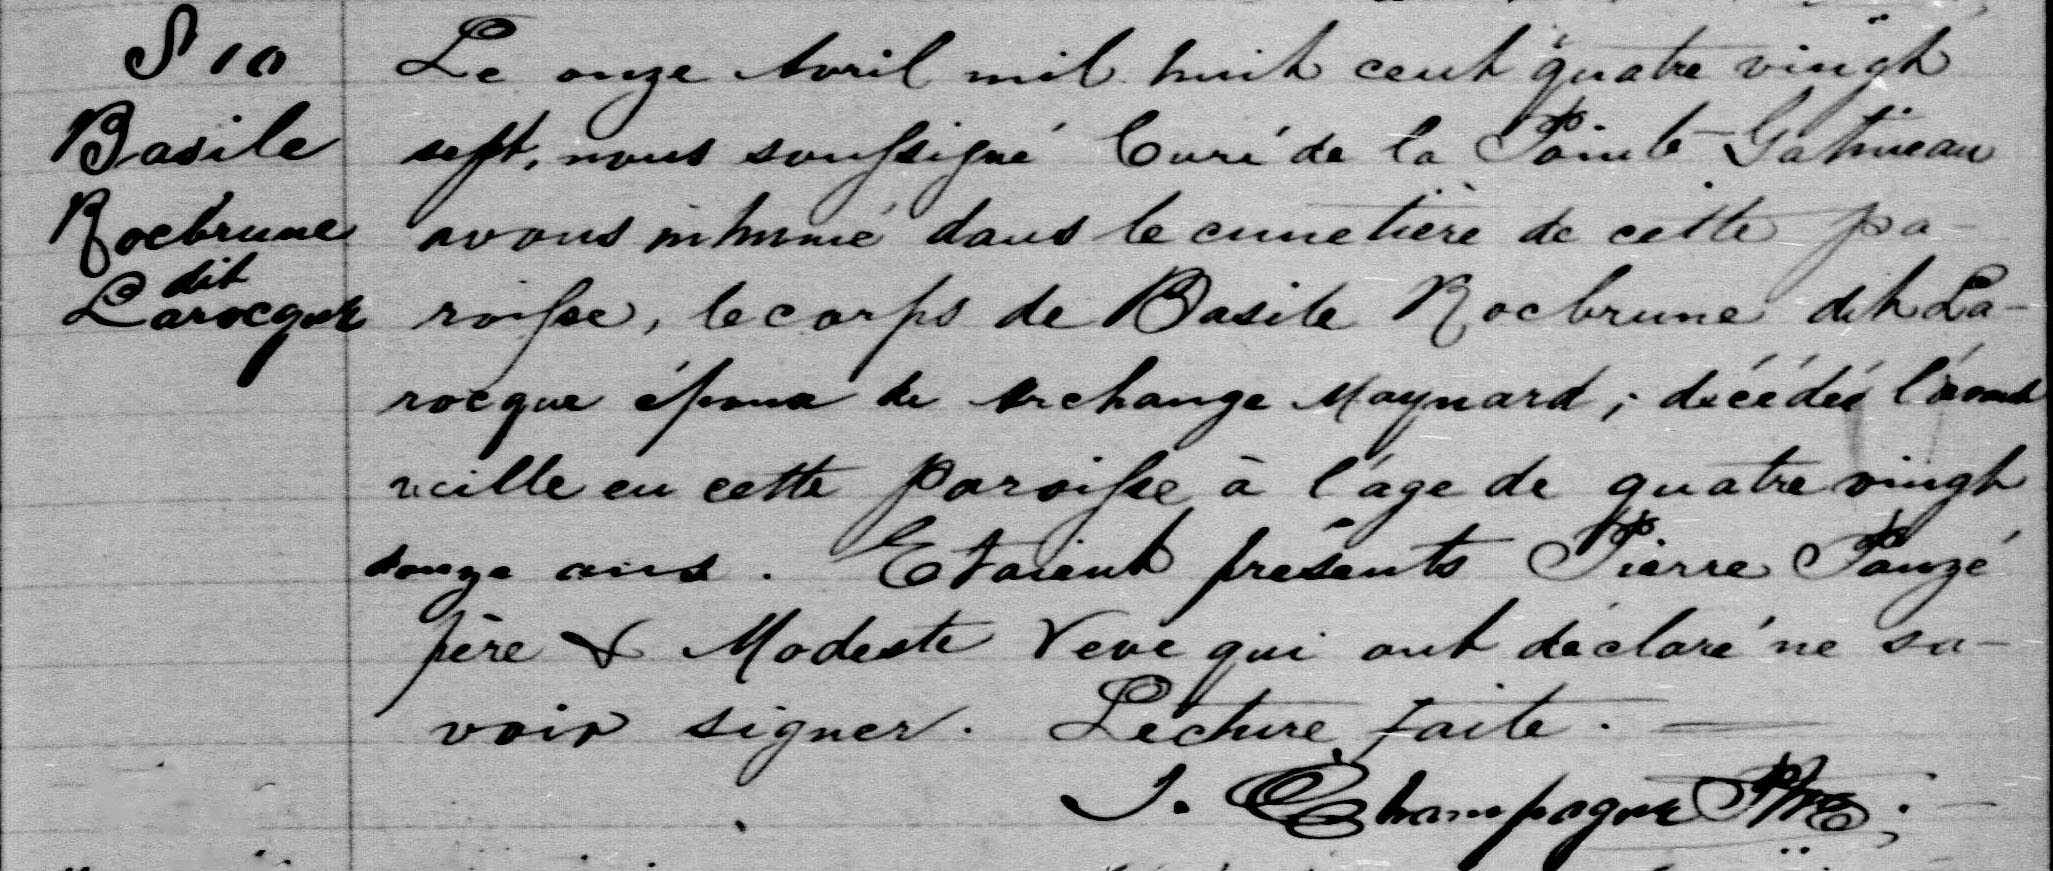 S 10
Basile
Rocbrune
dit
Larocque
Le onze Avril mil huit cent quatre vingt
sept, nous soussigné Curé de la Pointe Gatineau
avons inhumé dans le cimetière de cette pa-
roisse, le corps de Basile Rocbrune dit La-
rocque époux de Archange Maynard; décédé l'avant
veille en cette paroisse à l'âge de quatre vingt
ans. Etaient présents Pierre Pauzé
père & Modeste Veve qui ont déclaré ne sa-
voir signer. Lecture faite.
I. Champagne Ptre